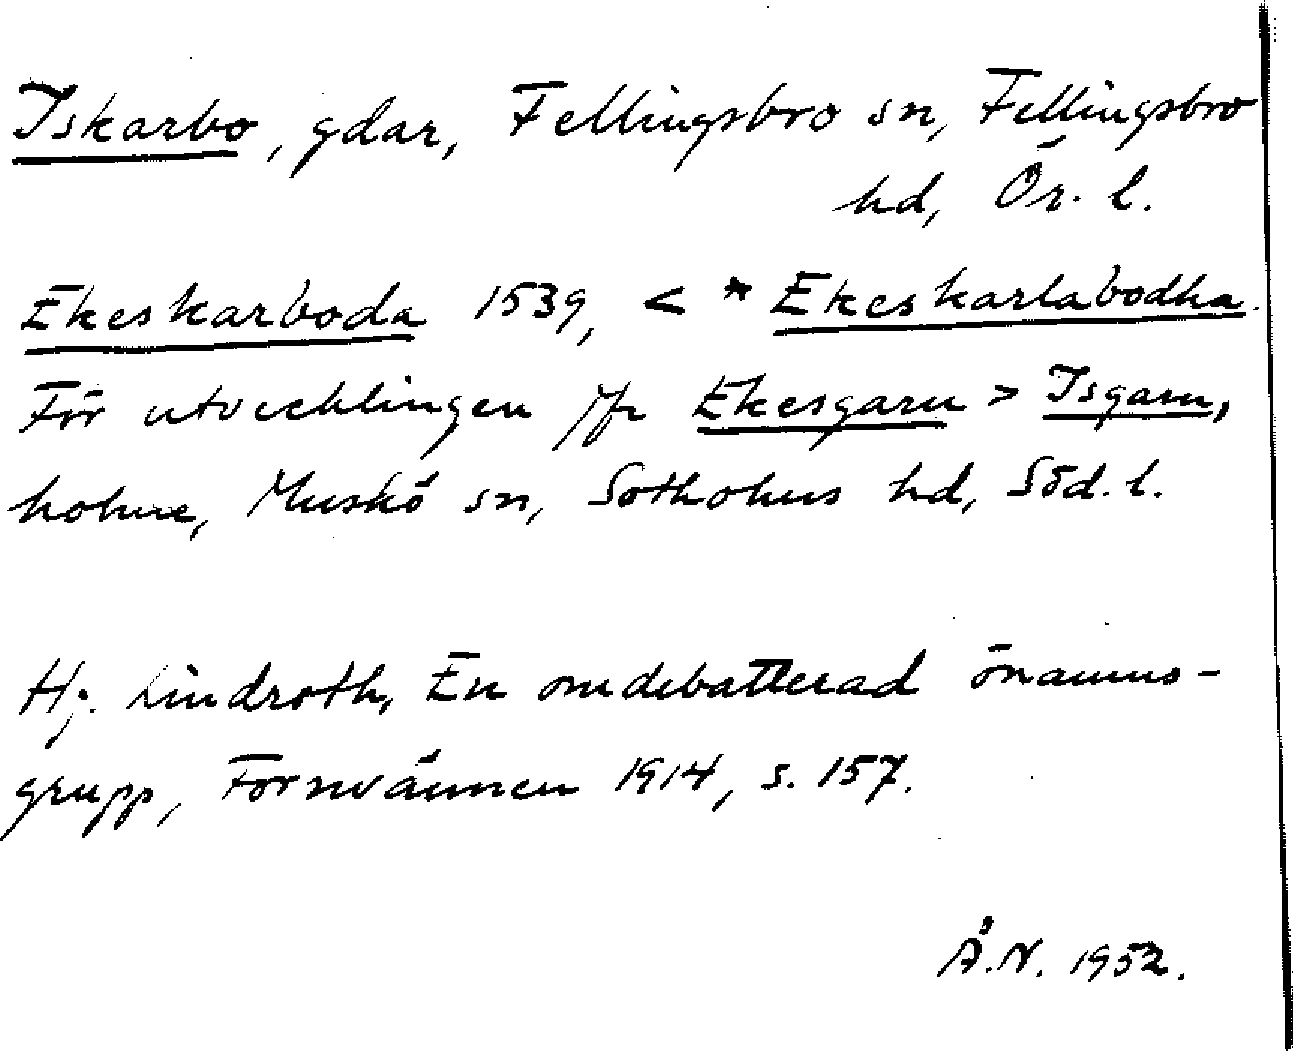 Iskarbo, gdar, Fellingsbro sn, Fellingsbro
hd, Ör. l.
Ekeskarboda 1539, < * Ekeskarlabodha.
För utvecklingen jfr Ekesgarn > Isgarn,
holme, Muskö sn, Sotholms hd, Söd. l.
Hj. Lindroth, En omdebatterad önamns-
grupp, Fornvännen 1914, s. 157.
Å.N. 1952.